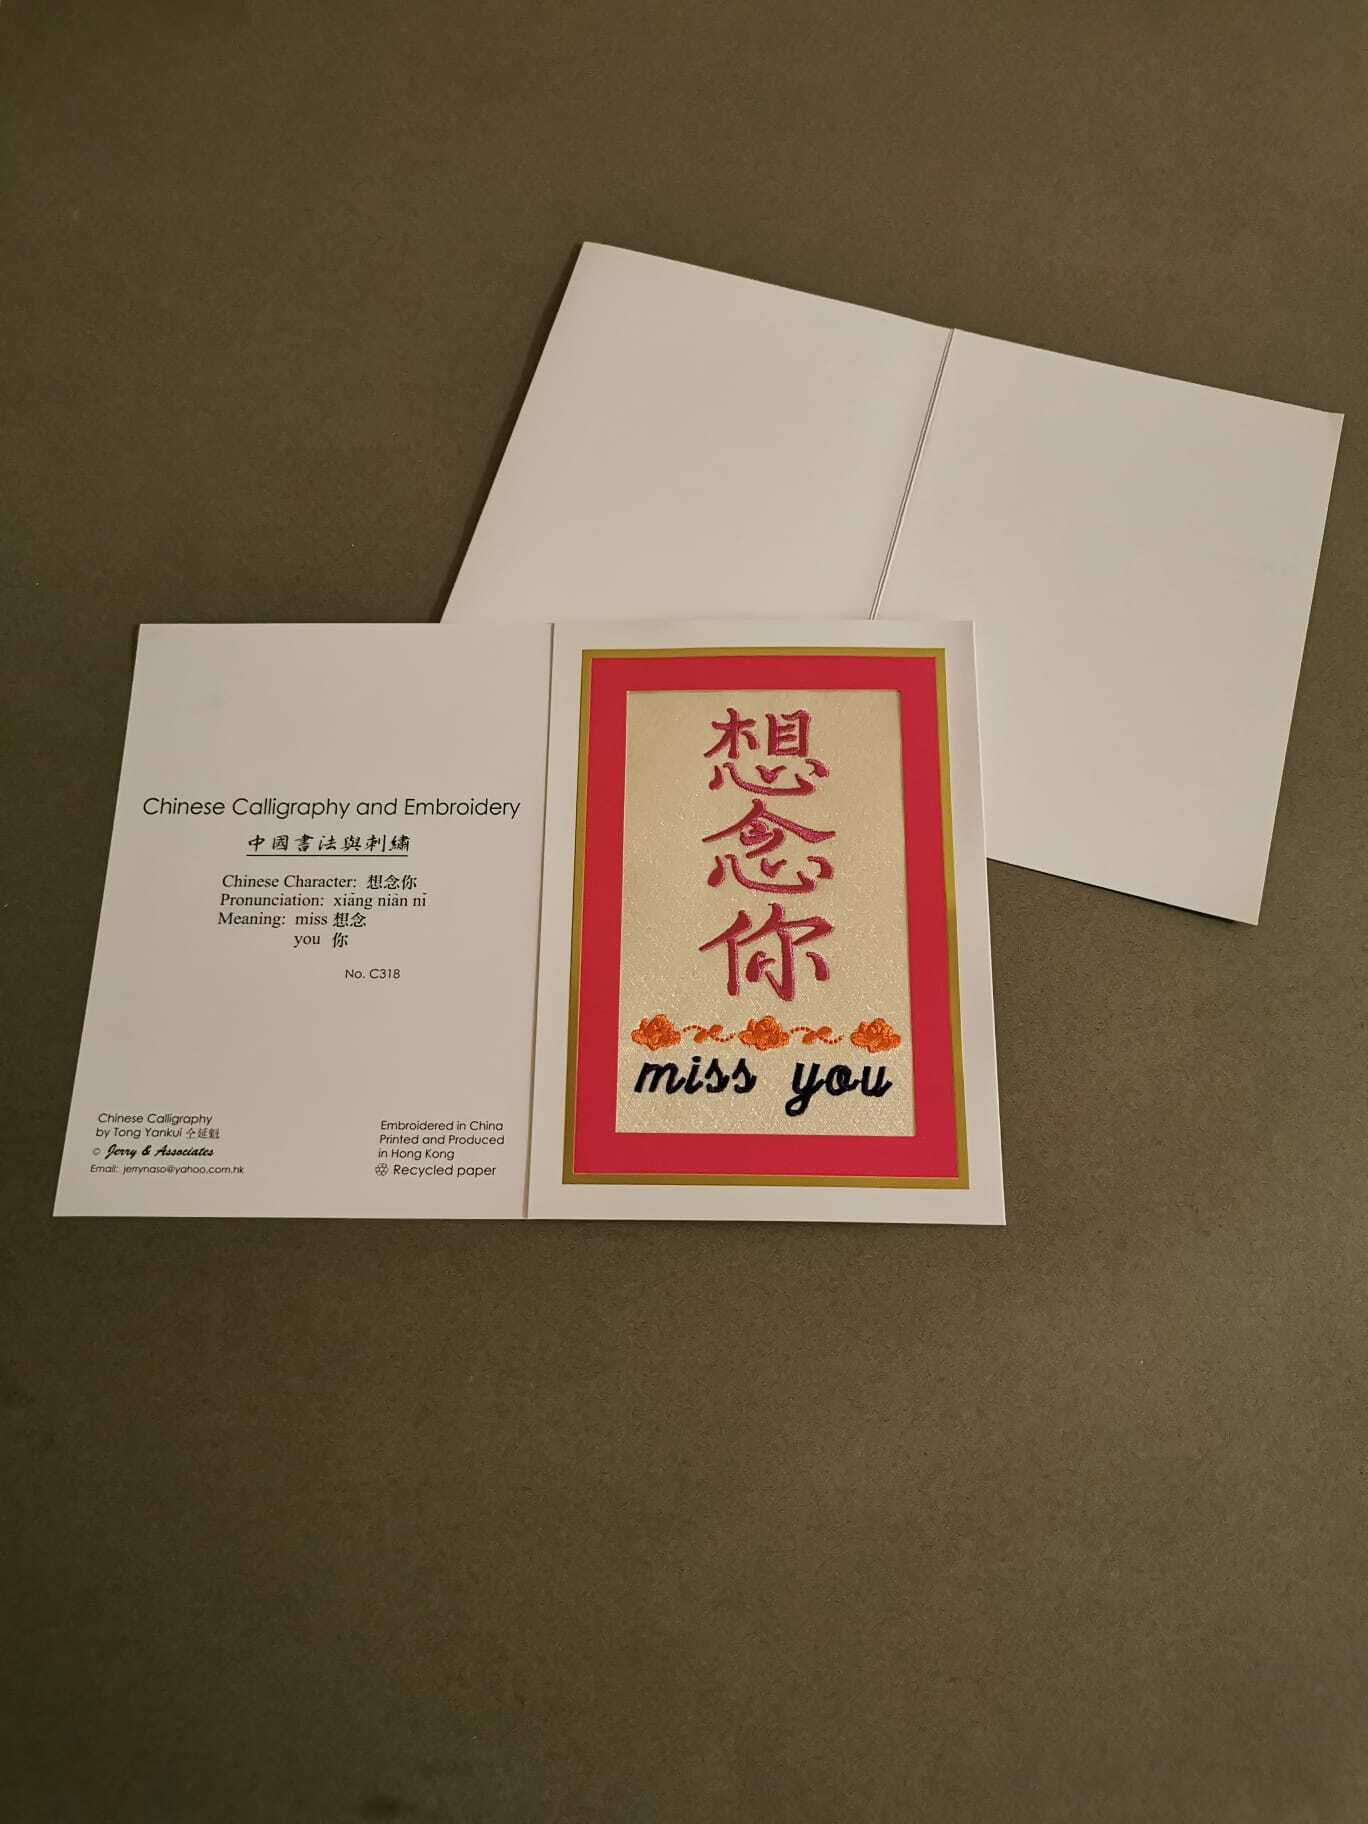 Chinese Calligraphy and Embroidery
中國書法與刺繡
Chinese Character: 想念你
Pronunciation: xiǎng niàn nǐ
Meaning: miss 想念
you 你
No. C318
Chinese Calligraphy
by Tong Yankui 仝延魁
© Jerry & Associates
Email: jerrynaso@yahoo.com.hk
Embroidered in China
Printed and Produced
in Hong Kong
Recycled paper
想
念
你
miss you